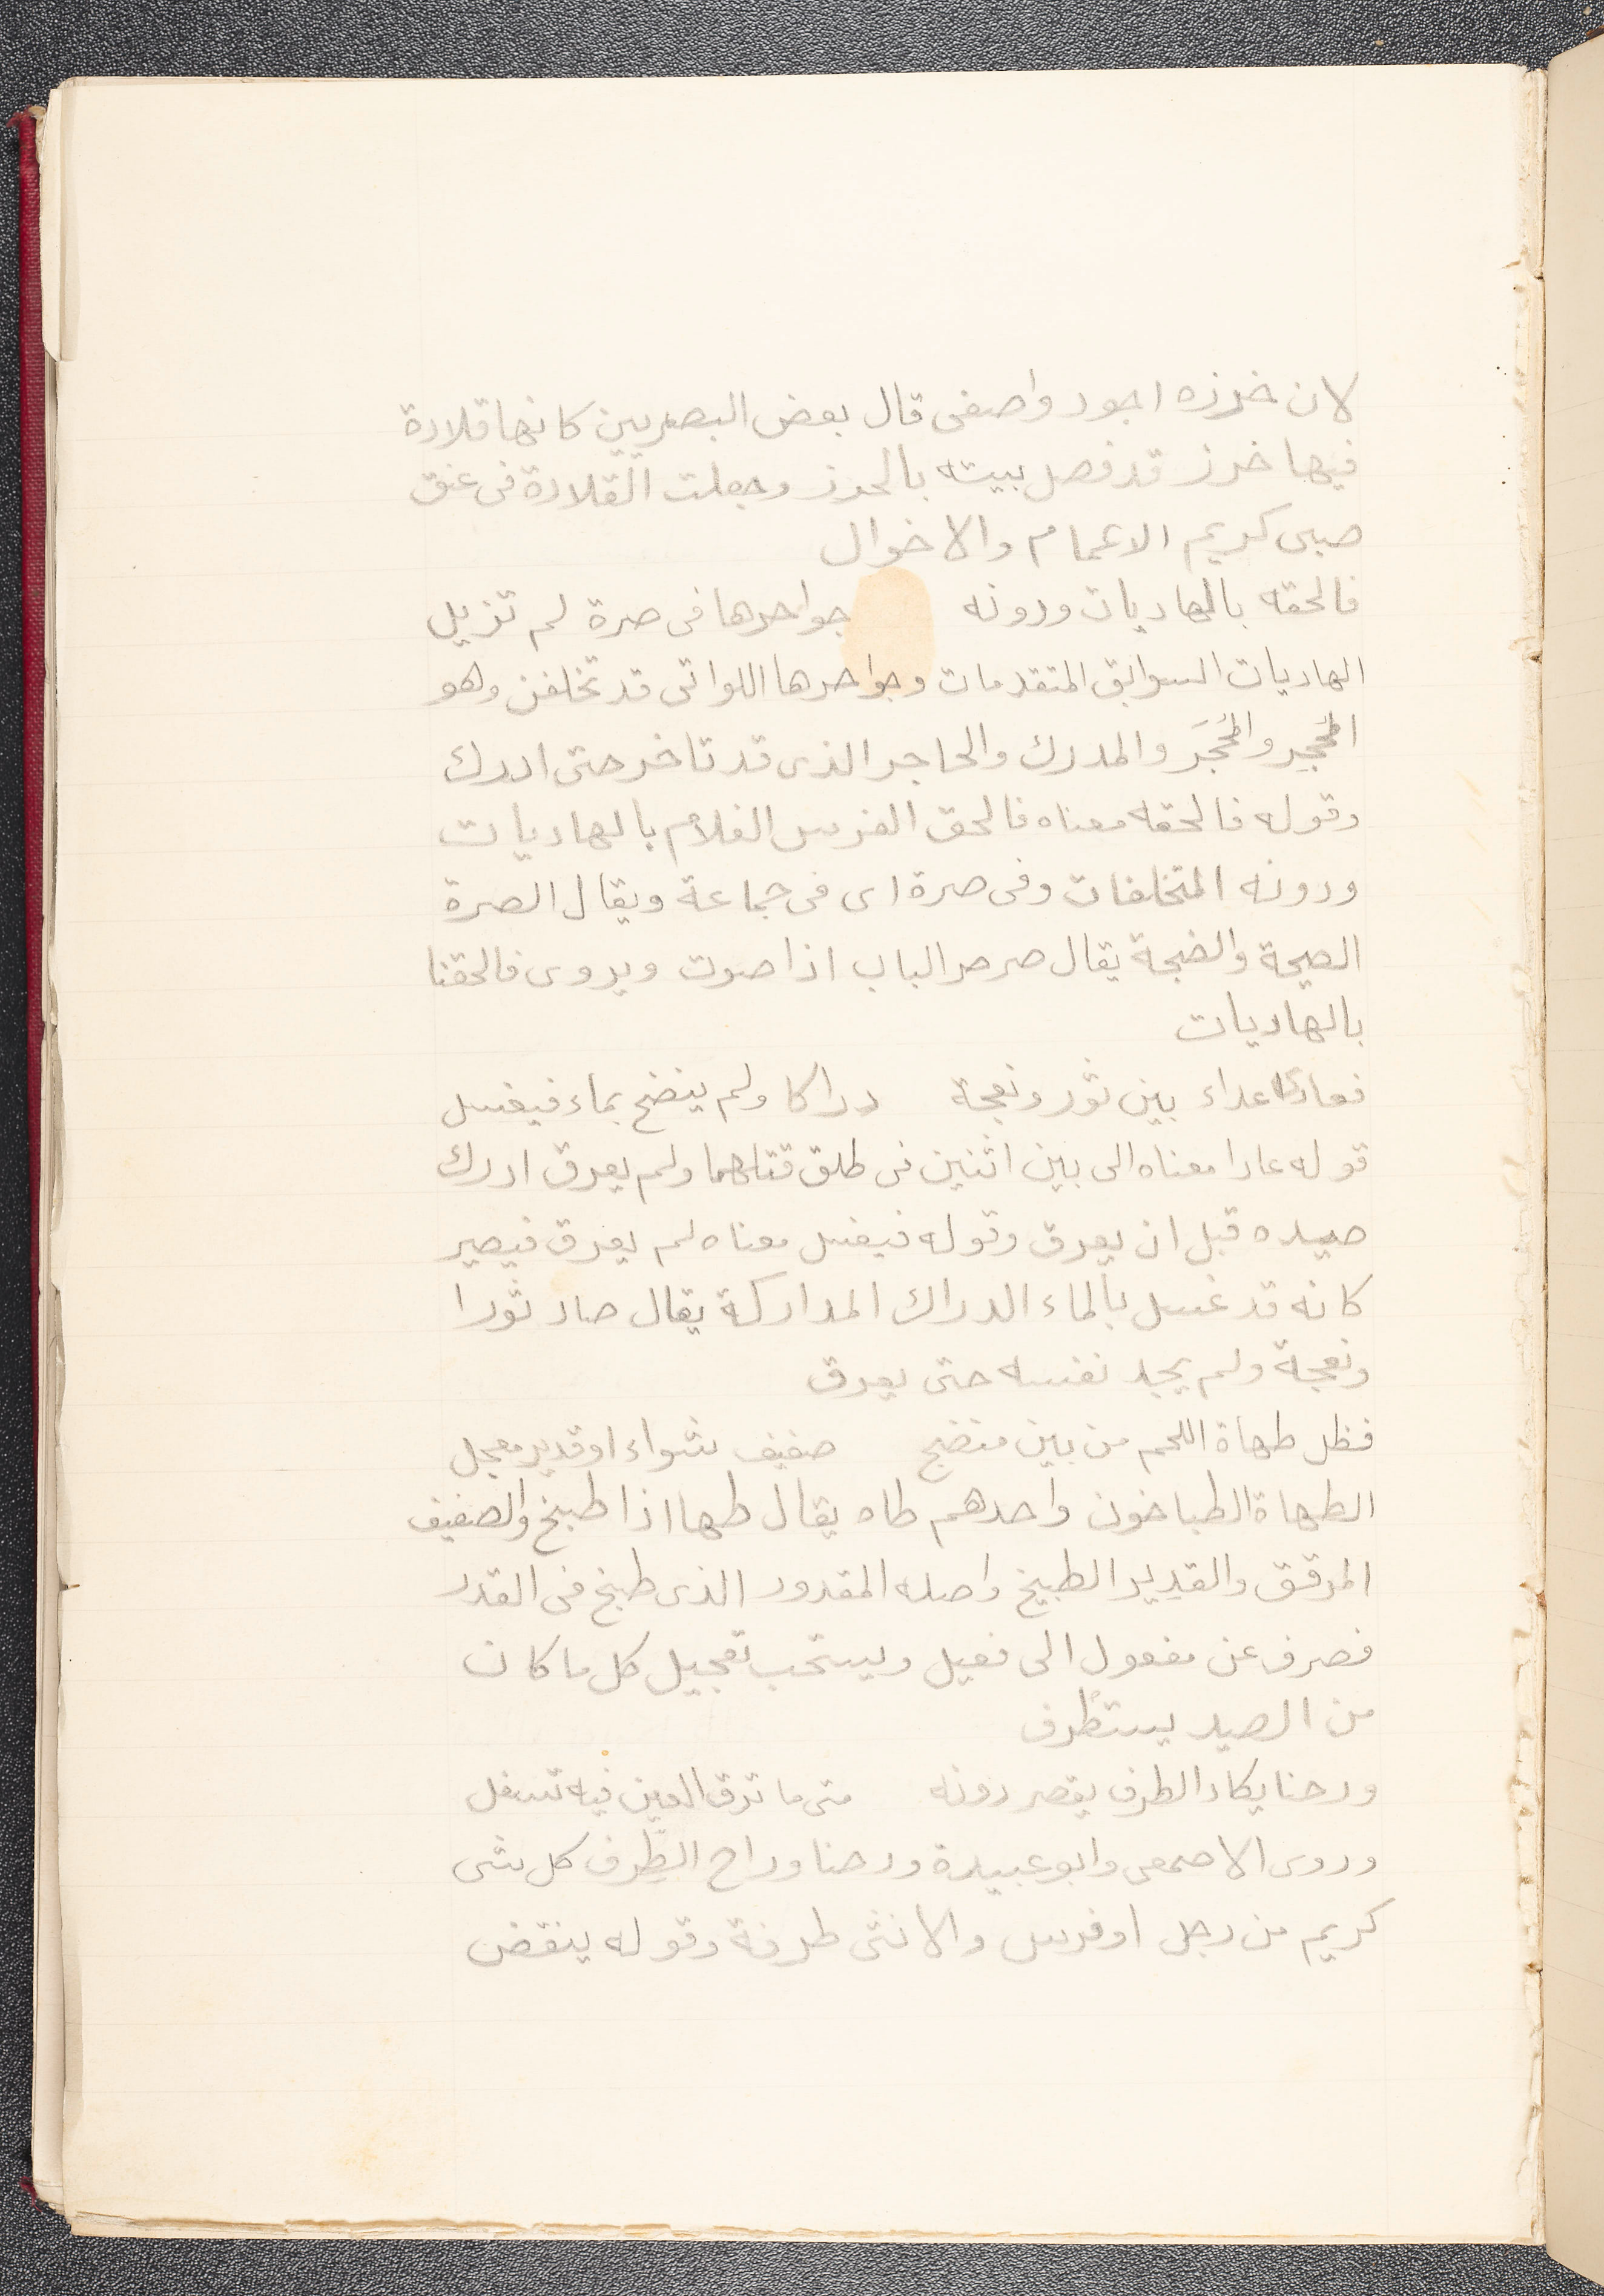 لان خرزه اجود واصفى قال بعض البصريين كانها قلادة
فيها خرز قد فصل بيته بالحرز وجعلت القلادة فى عنق
صبى كريم الاعمام والاخوال
فالحقه بالهاديات ودونه جواحرها فى صرة لم تزيل
الهاديات السوابق المتقدمات وجواحرها اللواتى قد تخلفن وهو
المُجحِر والمُجحَر والمدرك والجاحر الذى قد تاخر حتى ادرك
وقوله فالحقه معناه فالحق الفرس الغلام بالهاديات
ودونه المتخلفات وفى صرة اى فى جماعة ويقال الصرة
الصيحة والضجة يقال صرصر الباب اذا صوت ويروى فالحقنا
بالهاديات
فعادى عداء بين ثور ونعجة دراكا ولم ينضح بماء فيغسل
قوله عادا معناه الى بين اثنين فى طلق قتلهما ولم يعرق ادرك
صيده قبل ان يعرق وقوله فيغسل معناه لم يعرق فيصير
كانه قد غسل بالماء الدراك المداركة يقال صاد ثورا
ونعجة ولم يجهد نفسه حتى يعرق
فظل طهاة اللحم من بين منضج صفيف شواء او قدير معجل
الطهاة الطباخون واحدهم طاه يقال طها اذا طبخ والصفيف
المرقق والقدير الطبيخ واصله المقدور الذى طبخ فى القدر
فصرف عن مفعول الى فعيل ويستحب تعجيل كل ما كان
من الصيد يستظرف
ورحنا يكاد الطرف يقصر دونه متى ما ترق العين فيه تسفل
وروى الاصمعى وابو عبيدة ورحنا وراح الطِّرف كل شى
كريم من رجل او فرس والانثى طرفة وقوله ينقض